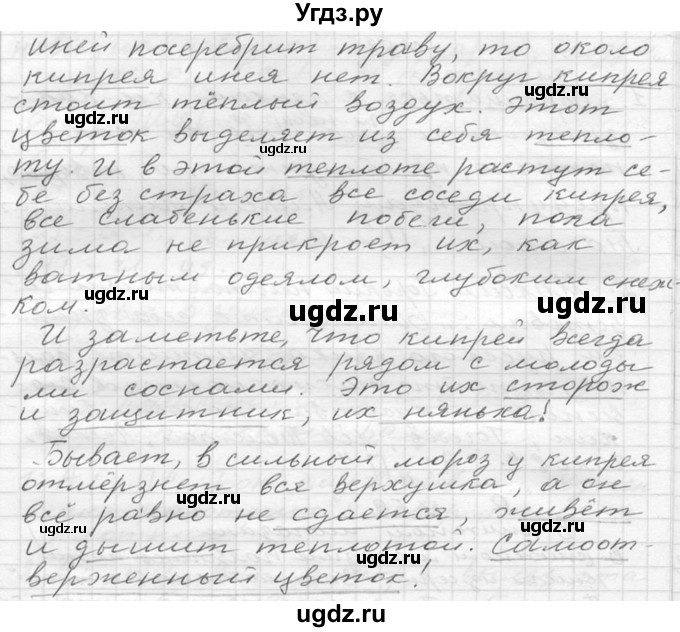 Угдз.ру
иней посеребрит траву, то около
кипрея инея нет. Вокруг кипрея
стоит тёплый воздух. Этот
цветок выделяет из себя тепло-
ту. И в этой теплоте растут се-
бе без страха все соседи кипрея,
все слабенькие побеги, пока
зима не прикроет их, как
ватным одеялом, глубоким снеж-
ком.
И заметьте, что кипрей всегда
разрастается рядом с молоды
ми соснами. Это их сторож
и защитник, их нянька!
Бывает, в сильный мороз у кипрея
отмёрзнет вся верхушка, а он
всё равно не сдается, живёт
и дышит теплотой. Самоот-
верженный цветок!
ugdz.ru
ugdz.ru
ugdz.ru
ugdz.ru
ugdz.ru
ugdz.ru
ugdz.ru
ugdz.ru
ugdz.ru
ugdz.ru
ugdz.ru
ugdz.ru